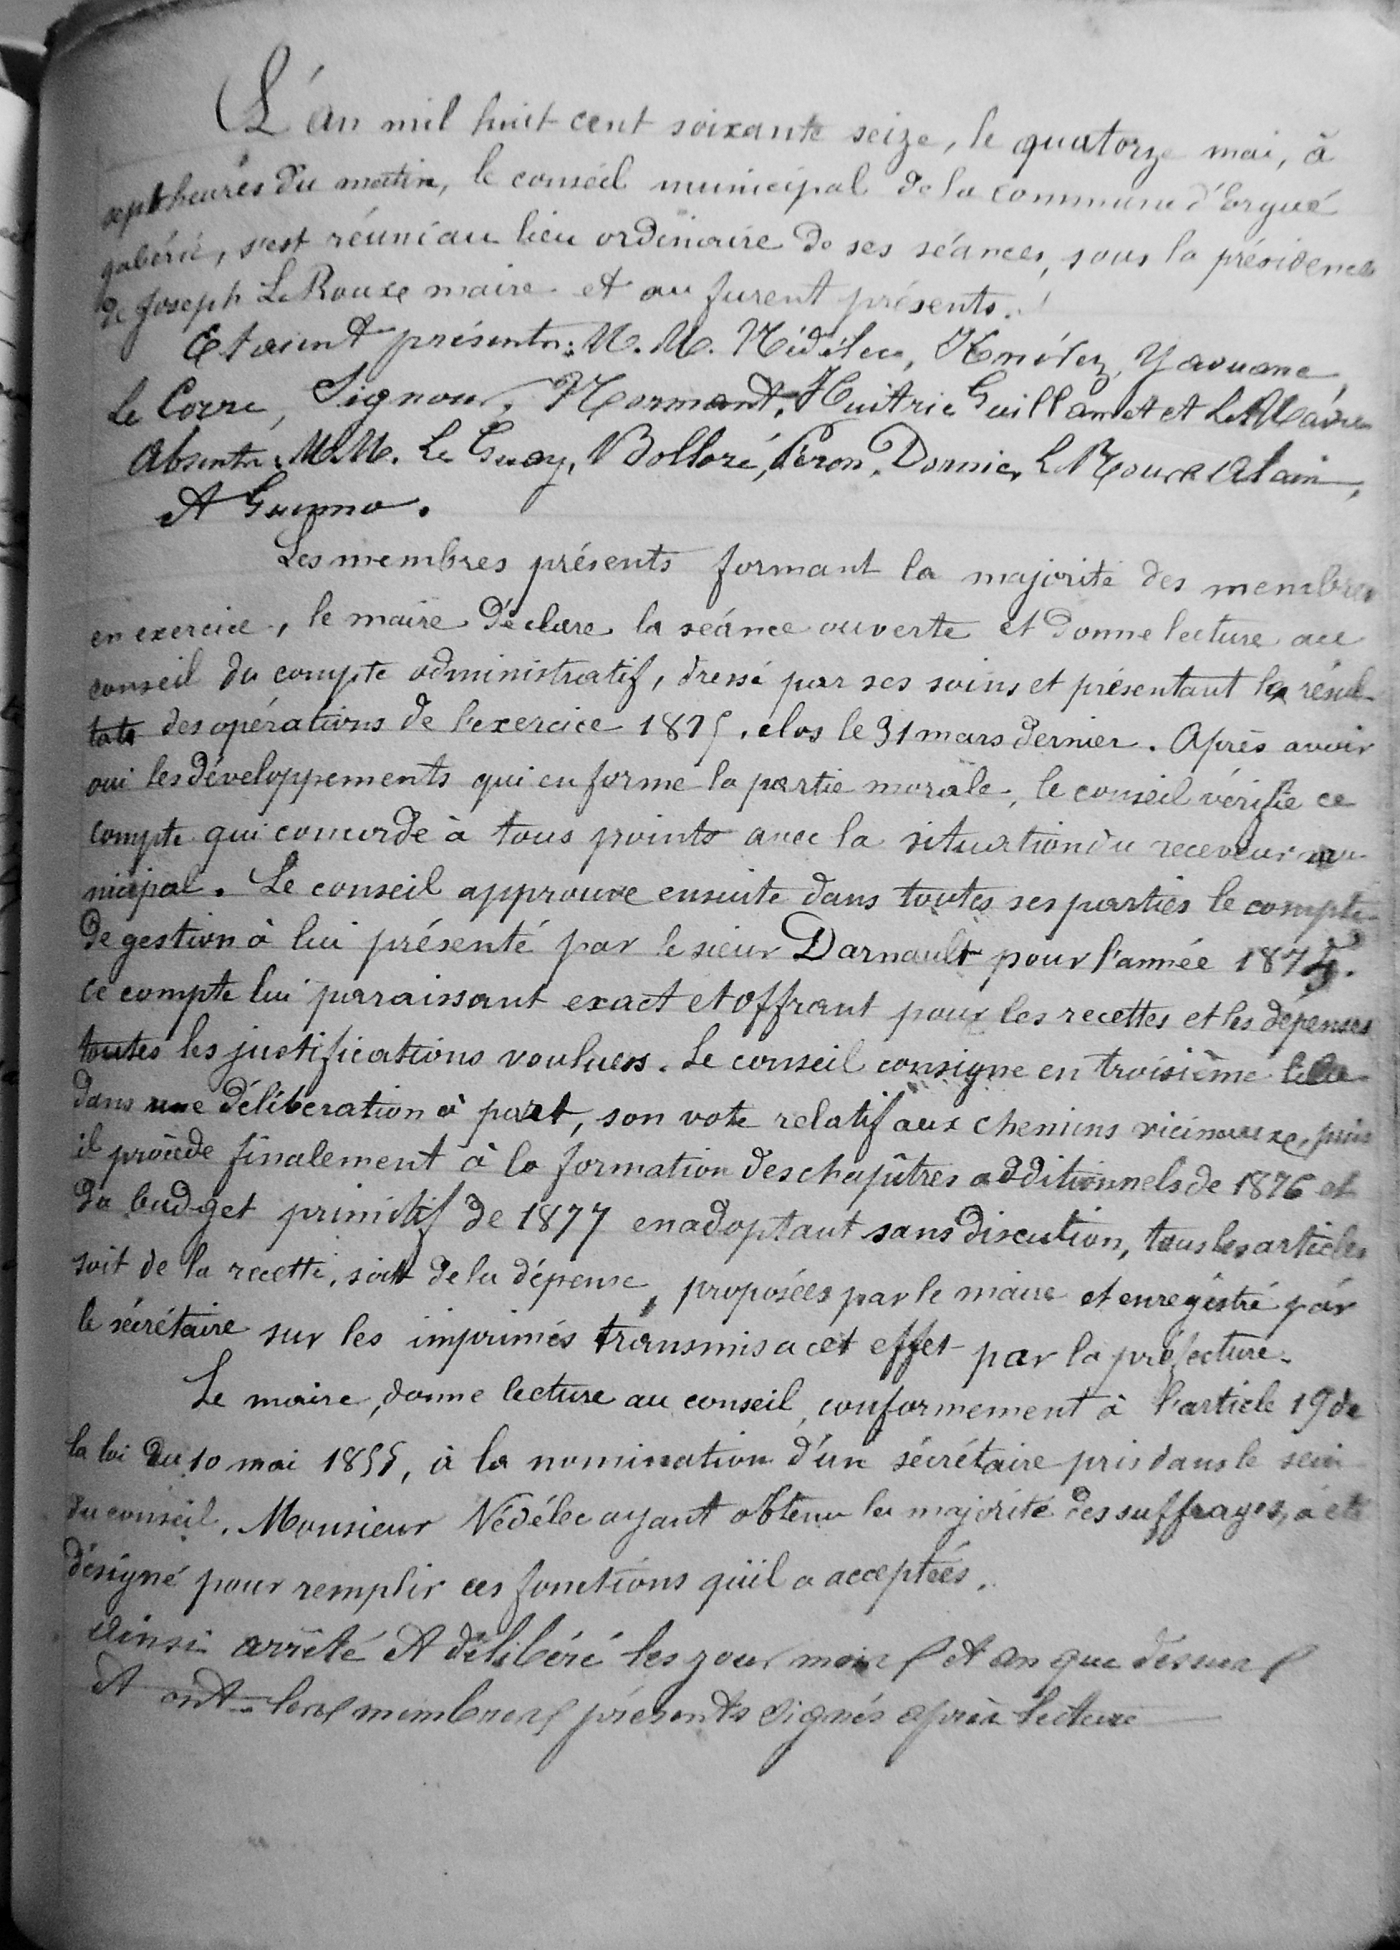 L'an mil huit cent soixante seize, le quatorze mai, à
sept heures du matin, le conseil municipal de la commune d'Ergué
gabéric, s'est réuni au lieu ordinaire de ses séances, sous la présidence
de Joseph Le Roux maire et au furent présents.
Etaient présents: M.M. Nédélec, Yaouanc,
Le Corre, Signour, Normant, Huitric Guillamet et Le Maire
Absents. M.M. Le Guay, Bolloré, Péron, Le Roux Alain,
et
Les membres présents formant la majorité des membres
en exercice, le maire déclare la séance ouverte et donne lecture au
conseil du compte administratif, dressé par ses soins et présentant les résul-
tats des opérations de l'exercice 1875, clos le 31 mars dernier. Après avoir
oui les développements qui en forme la partie morale, le conseil vérifie ce
compte qui concorde à tous points avec la situation du receveur mu-
nicipal. Le conseil approuve ensuite dans toutes ses parties le compte
de gestion à lui présenté par le sieur Darnault pour l'année 1875.
ce compte lui paraissant exact et offrant pour les recettes et les dépenses
toutes les justifications voulues. Le conseil consigne en troisième
dans une délibération à part, son vote relatif aux chemins vicinaux, puis
il procède finalement à la formation des chapîtres additionnels de 1876 et
du budget primitif de 1877 en adoptant sans discution, tous les articles
soit de la recette, soit de la dépense, proposées par le maire et enregistré par
le sécrétaire sur les imprimés transmis a cet effet par la préfecture.
Le maire, donne lecture au conseil, conformement à l'article 19 de
la loi du 10 mai 1855, à la nomination d'un sécrétaire pris dans le sein
du conseil. Monsieur Nédélec ayant obtenu la majorité des suffrages, a été
désigné pour remplir ces fonctions qu'il a acceptées.
Ainsi arrêté et délibéré les jour mois et an que dessus
et ont les membres présents signés après lecture